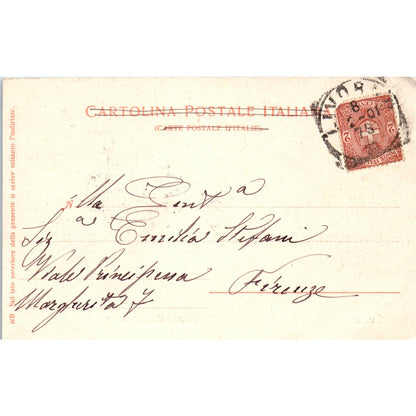 CARTOLINA POSTALE ITALIANA
(CARTE POSTALE D'ITALIE)
LIVOR
Alla Gent a
Sig a Emilia Stefani
Viale Principessa
Margherita 7
Firenze
NB Sul lato anteriore della presente si scrive soltanto l'indirizzo.